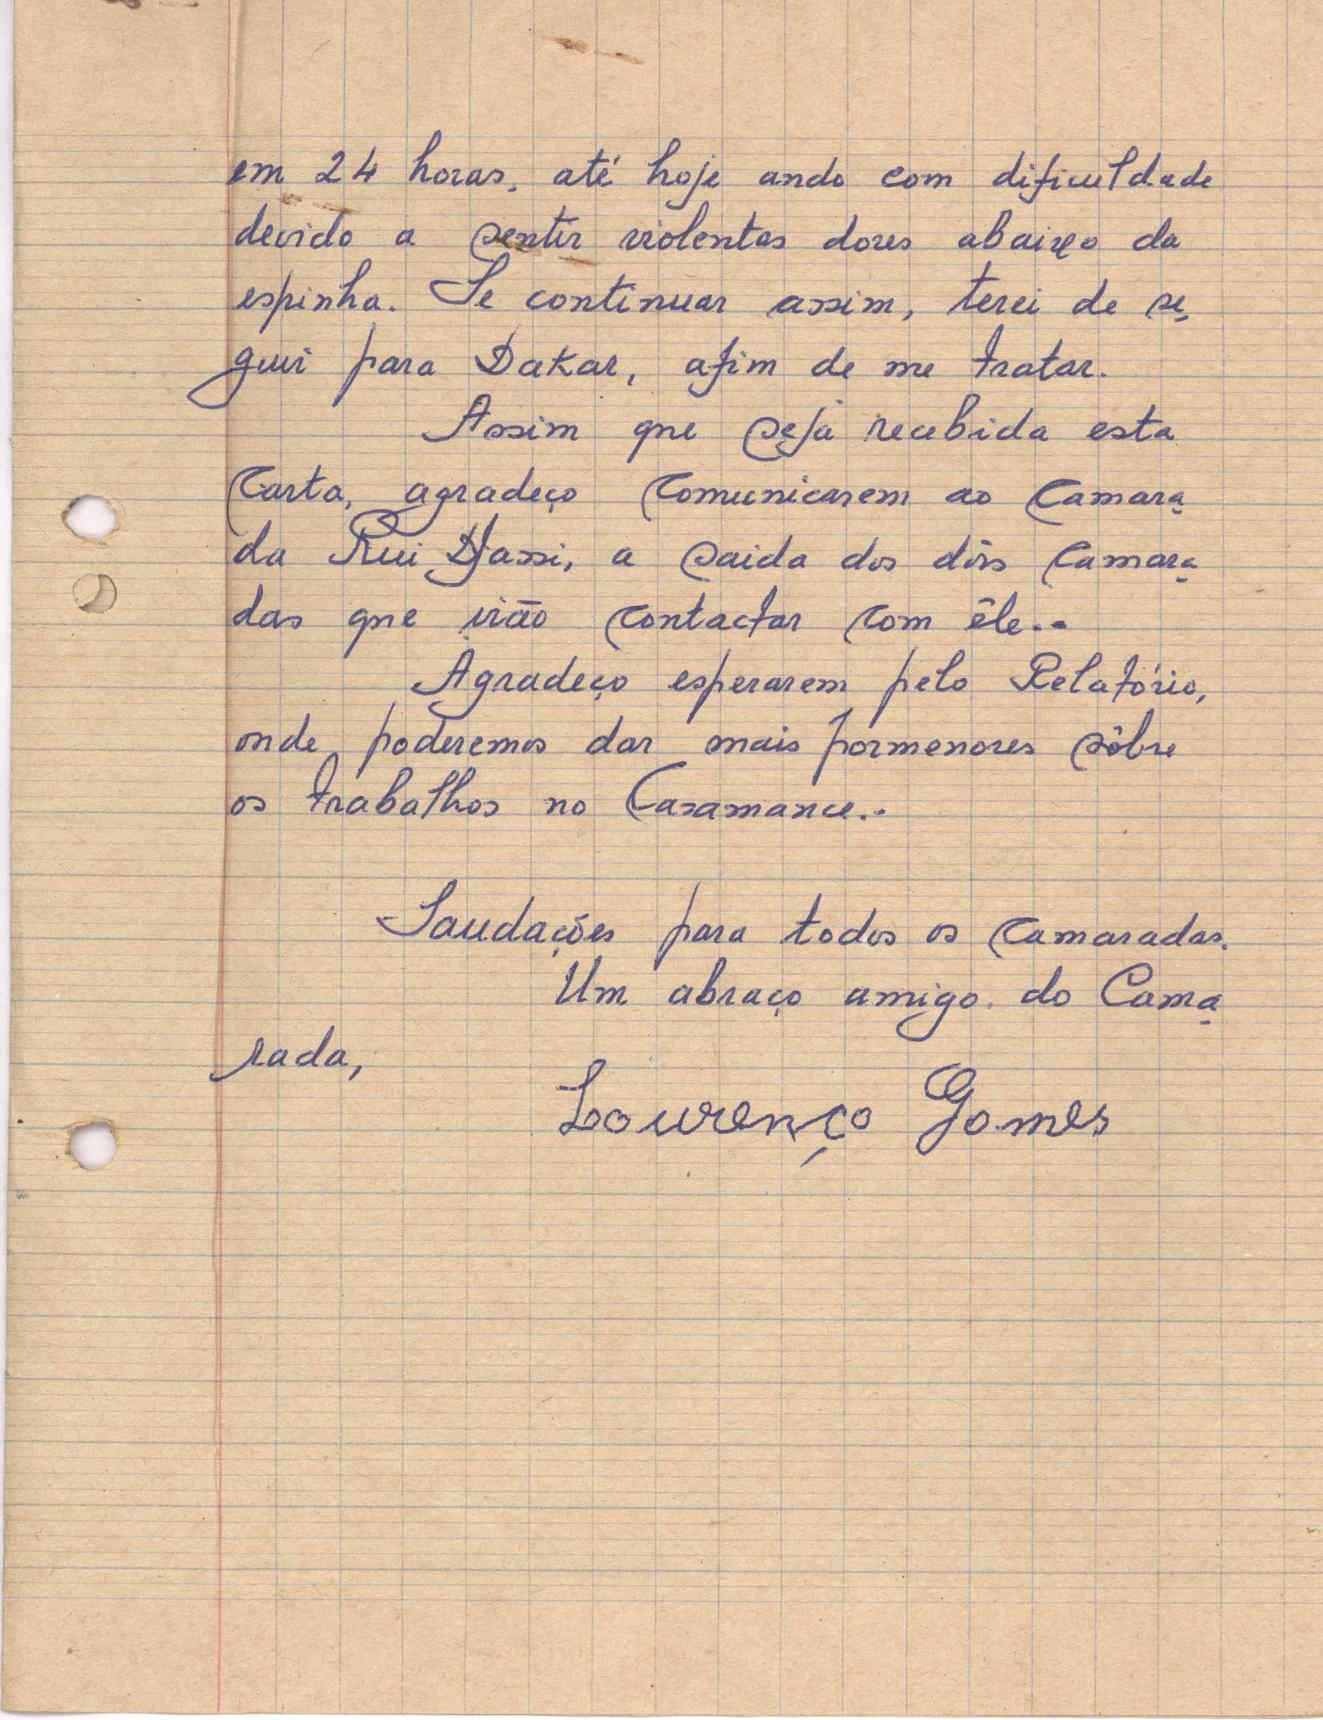 em 24 horas, até hoje ando com dificuldade
devido a sentir violentas dores abaixo da
espinha. Se continuar assim, terei de se-
guir para Dakar, afim de me tratar.
Assim que seja recebida esta
carta, agradeço comunicarem ao camara-
da Rui Djassi, a saida dos dôis camara-
das que irão contactar com êle.-
Agradeço esperarem pelo Relatório,
onde poderemos dar mais pormenores sôbre
os trabalhos no Casamance.-
Saudações para todos os camaradas.
Um abraço amigo do Cama-
rada,
Lourenço Gomes